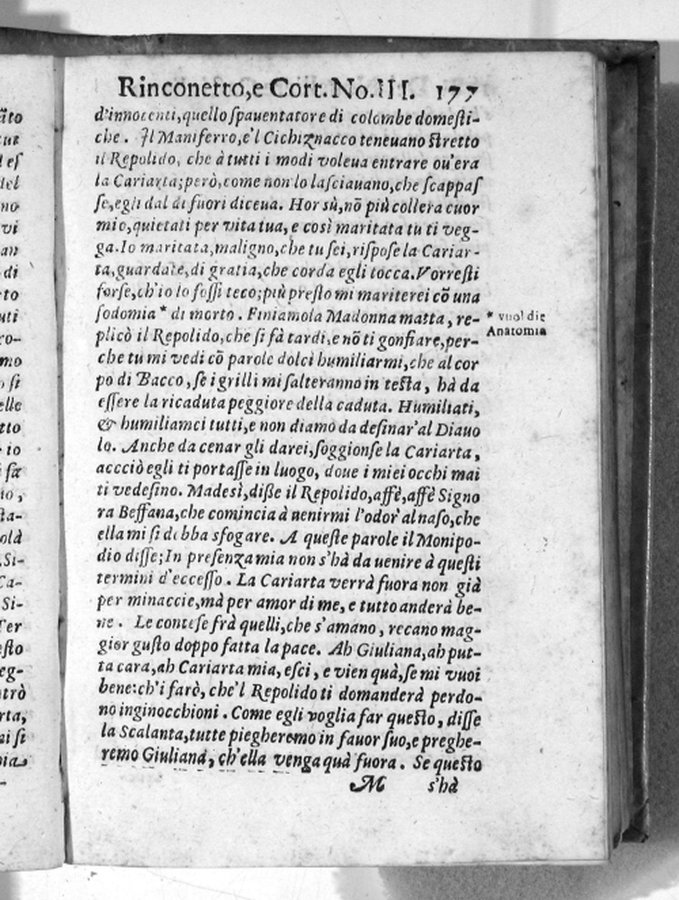 Rinconetto, e Cort. No. III. 177
d'innocenti, quello ſpauentatore di colombe domeſti-
che. Il Maniferro, e'l Cichiznacco teneuano ſtretto
il Repolido, che à tutti i modi voleua entrare ou'era
la Cariarta; però, come non lo laſciauano, che ſcappaſ
ſe, egli dal di fuori diceua. Hor sù, nõ più collera cuor
mio, quietati per vita tua, e così maritata tu ti veg-
ga. Io maritata, maligno, che tu ſei, riſpoſe la Cariar-
ta, guardate, di gratia, che corda egli tocca. Vorreſti
forſe, ch'io lo foſſi teco; più preſto mi mariterei cõ una
ſodomia * di morto. Finiamola Madonna matta, re-
* vuol die
Anatomia
plicò il Repolido, che ſi fà tardi, e nõ ti gonfiare, per-
che tu mi vedi cõ parole dolci humiliarmi, che al cor
po di Bacco, ſe i grilli mi ſalteranno in teſta, hà da
eſſere la ricaduta peggiore della caduta. Humiliati,
& humiliamci tutti, e non diamo da deſinar'al Diauo
lo. Anche da cenar gli darei, ſoggionſe la Cariarta,
acciò egli ti portaſſe in luogo, doue i miei occhi mai
ti vedeſino. Madesì, diße il Repolido, affè, affè Signo
ra Beffana, che comincia à uenirmi l'odor' al naſo, che
ella mi ſi debba sfogare. A queſte parole il Monipo-
dio diſſe; In preſenza mia non s'hà da uenire à queſti
termini d'ecceſſo. La Cariarta verrà fuora non già
per minaccie, mà per amor di me, e tutto anderà be-
ne. Le conteſe frà quelli, che s'amano, recano mag-
gior guſto doppo fatta la pace. Ah Giuliana, ah put-
ta cara, ah Cariarta mia, eſci, e vien quà, ſe mi vuoi
bene: ch'i farò, che'l Repolido ti domanderà perdo-
no inginocchioni. Come egli voglia far queſto, diſſe
la Scalanta, tutte piegheremo in fauor ſuo, e preghe-
remo Giuliana, ch'ella venga quà fuora. Se queſto
M s'hà